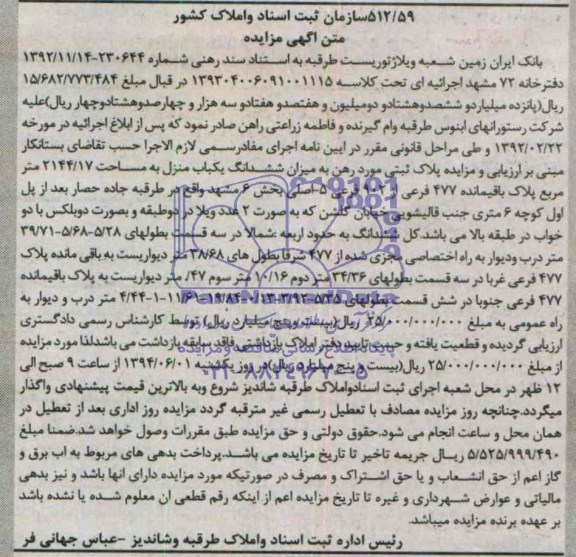 ۵۱۲/۵۹سازمان ثبت اسناد واملاک کشور
متن اگهی مزایده
بانک ایران زمین شعبه ویلاژتوریست طرقبه به استناد سند رهنی شماره ۲۳۰۶۴۴-۱۳۹۲/۱۱/۱۴
دفترخانه ۷۲ مشهد اجرائیه ای تحت کلاسه ۱۳۹۳۰۴۰۰۶۰۹۱۰۰۱۱۱۵ در قبال مبلغ ۱۵/۶۸۲/۷۷۳/۴۸۴
ریال(پانزده میلیاردو ششصدوهشتادو دومیلیون و هفتصدو هفتادو سه هزار و چهارصدوهشتادوچهار ریال)علیه
شرکت رستورانهای ابنوس طرقبه وام گیرنده و فاطمه زراعتی راهن صادر نمود که پس از ابلاغ اجرائیه در مورخه
۱۳۹۲/۰۲/۲۲ و طی مراحل قانونی مقرر در ایین نامه اجرای مفادرسمی لازم الاجرا حسب تقاضای بستانکار
مبنی بر ارزیابی و مزایده پلاک ثبتی مورد رهن به میزان ششدانگ یکباب منزل به مساحت ۲۱۴۴/۱۷ متر
مربع پلاک باقیمانده ۴۷۷ فرعی از فرعی ۵-اصلی بخش ۶ مشهد واقع در طرقبه جاده حصار بعد از پل
اول کوچه ۶ متری جنب قالیشویی خیابان گلشن که به صورت ۲ عدد ویلا در دوطبقه و بصورت دوبلکس با دو
خواب در طبقه بالا می باشد.کل ششدانگ به حدود اربعه :شمالا در سه قسمت بطولهای ۵/۲۸-۵/۶۸-۳۹/۷۱
متر درب ودیوار به راه اختصاصی مجزی شده از ۴۷۷ شرقا بطول های ۳۸/۶۸ متر دیواریست به باقی مانده پلاک
۴۷۷ فرعی غربا در سه قسمت بطولهای ۳۴/۳۶ متر دوم ۱۰/۱۶ متر سوم ۴۷/ متر دیواریست به پلاک باقیمانده
۴۷۷ فرعی جنوبا در شش قسمت بطولهای ۴/۴۴-۱-۱۱/۶۱ متر درب و دیوار به
راه عمومی به مبلغ ۲۵/۰۰۰/۰۰۰/۰۰۰ ریال(بیست وپنج میلیارد ریال) توسط کارشناس رسمی دادگستری
ارزیابی گردیده و قطعیت یافته و حسب تایید دفتر املاک بازداشتی فاقد سابقه بازداشت می باشدلذا مورد مزایده
از مبلغ ۲۵/۰۰۰/۰۰۰/۰۰۰ ریال(بیست و پنج میلیارد ریال)در روز یکشنبه ۱۳۹۴/۰۶/۰۱ از ساعت ۹ صبح الی
۱۲ ظهر در محل شعبه اجرای ثبت اسنادواملاک طرقبه شاندیز شروع وبه بالاترین قیمت پیشنهادی واگذار
میگردد.چنانچه روز مزایده مصادف با تعطیل رسمی غیر مترقبه گردد مزایده روز اداری بعد از تعطیل در
همان محل و ساعت انجام می شود.حقوق دولتی و حق مزایده طبق مقررات وصول خواهد شد.ضمنا مبلغ
۵/۵۲۵/۹۹۹/۴۹۰ ریال جریمه تاخیر تا تاریخ مزایده می باشد.پرداخت بدهی های مربوط به اب برق و
گاز اعم از حق انشعاب و یا حق اشتراک و مصرف در صورتیکه مورد مزایده دارای انها باشد و نیز بدهی
مالیاتی و عوارض شهرداری و غیره تا تاریخ مزایده اعم از اینکه رقم قطعی ان معلوم شده یا نشده باشد
بر عهده برنده مزایده میباشد.
رئیس اداره ثبت اسناد واملاک طرقبه وشاندیز -عباس جهانی فر